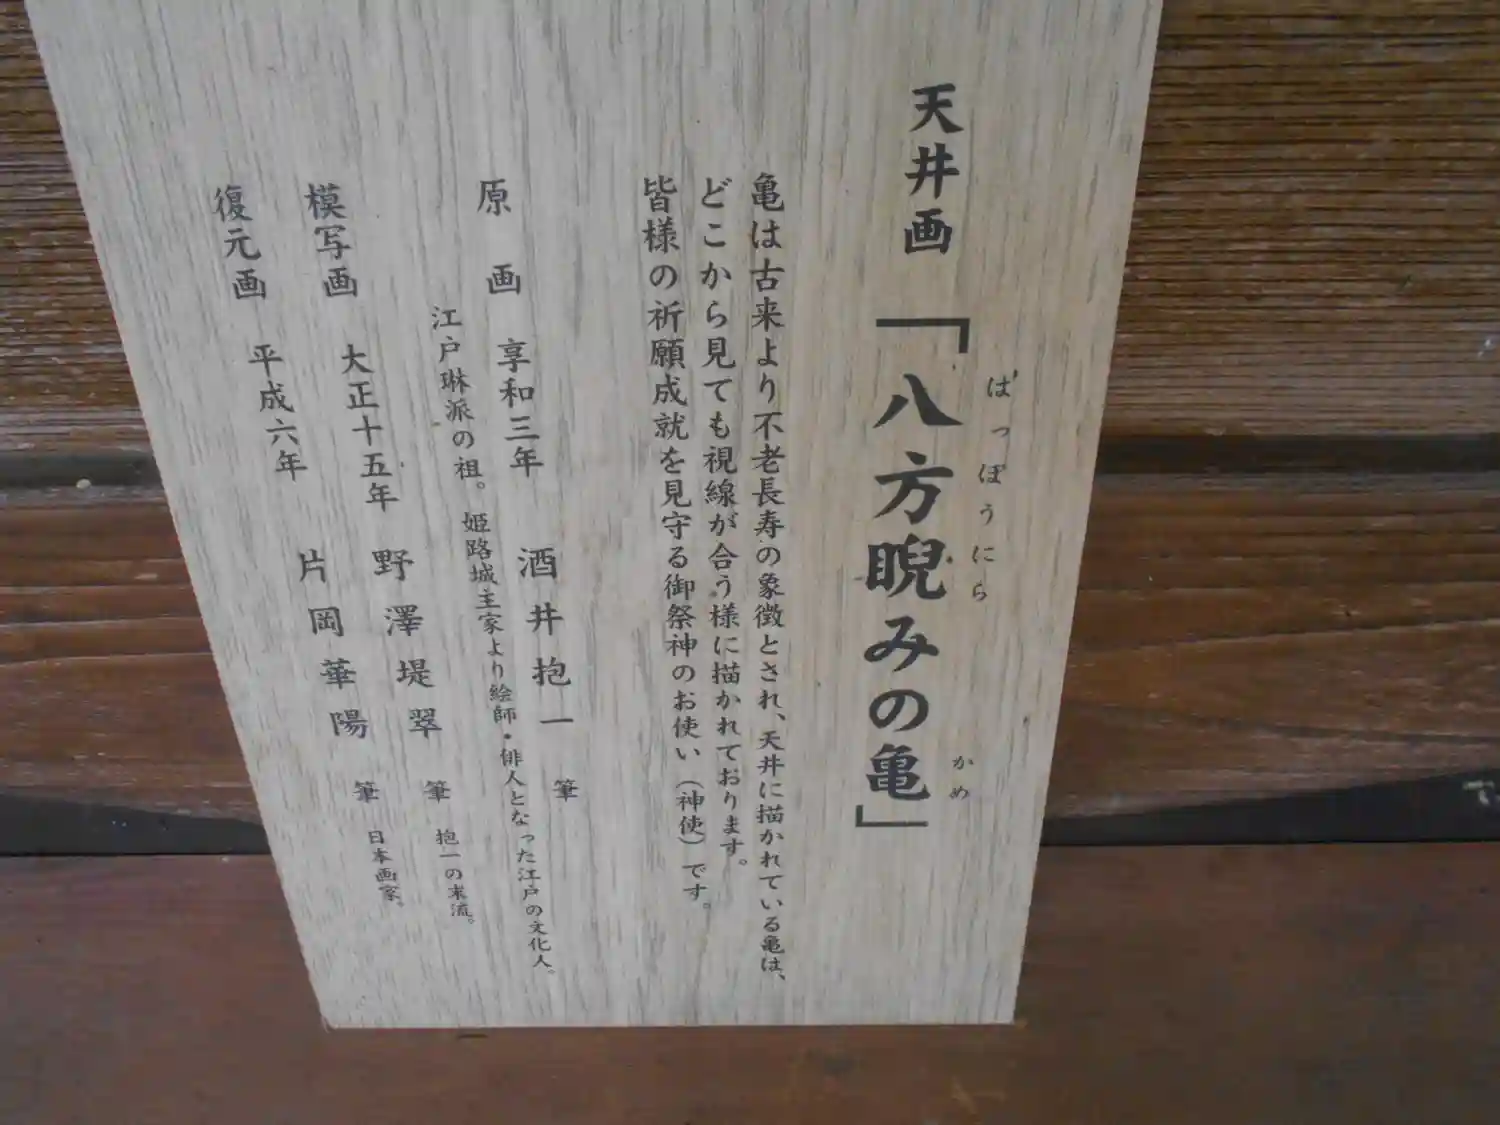 天井画「八方睨みの亀」
ばっぽうにら
かめ
亀は古来より不老長寿の象徴とされ、天井に描かれている亀は、
どこから見ても視線が合う様に描かれております。
皆様の祈願成就を見守る御祭神のお使い（神使）です。
原 画 享和三年 酒井抱一 筆
江戸琳派の祖。姫路城主家より絵師・俳人となった江戸の文化人。
模写画 大正十五年 野澤堤翠 筆 抱一の末流。
復元画 平成六年 片岡華陽 筆 日本画家。